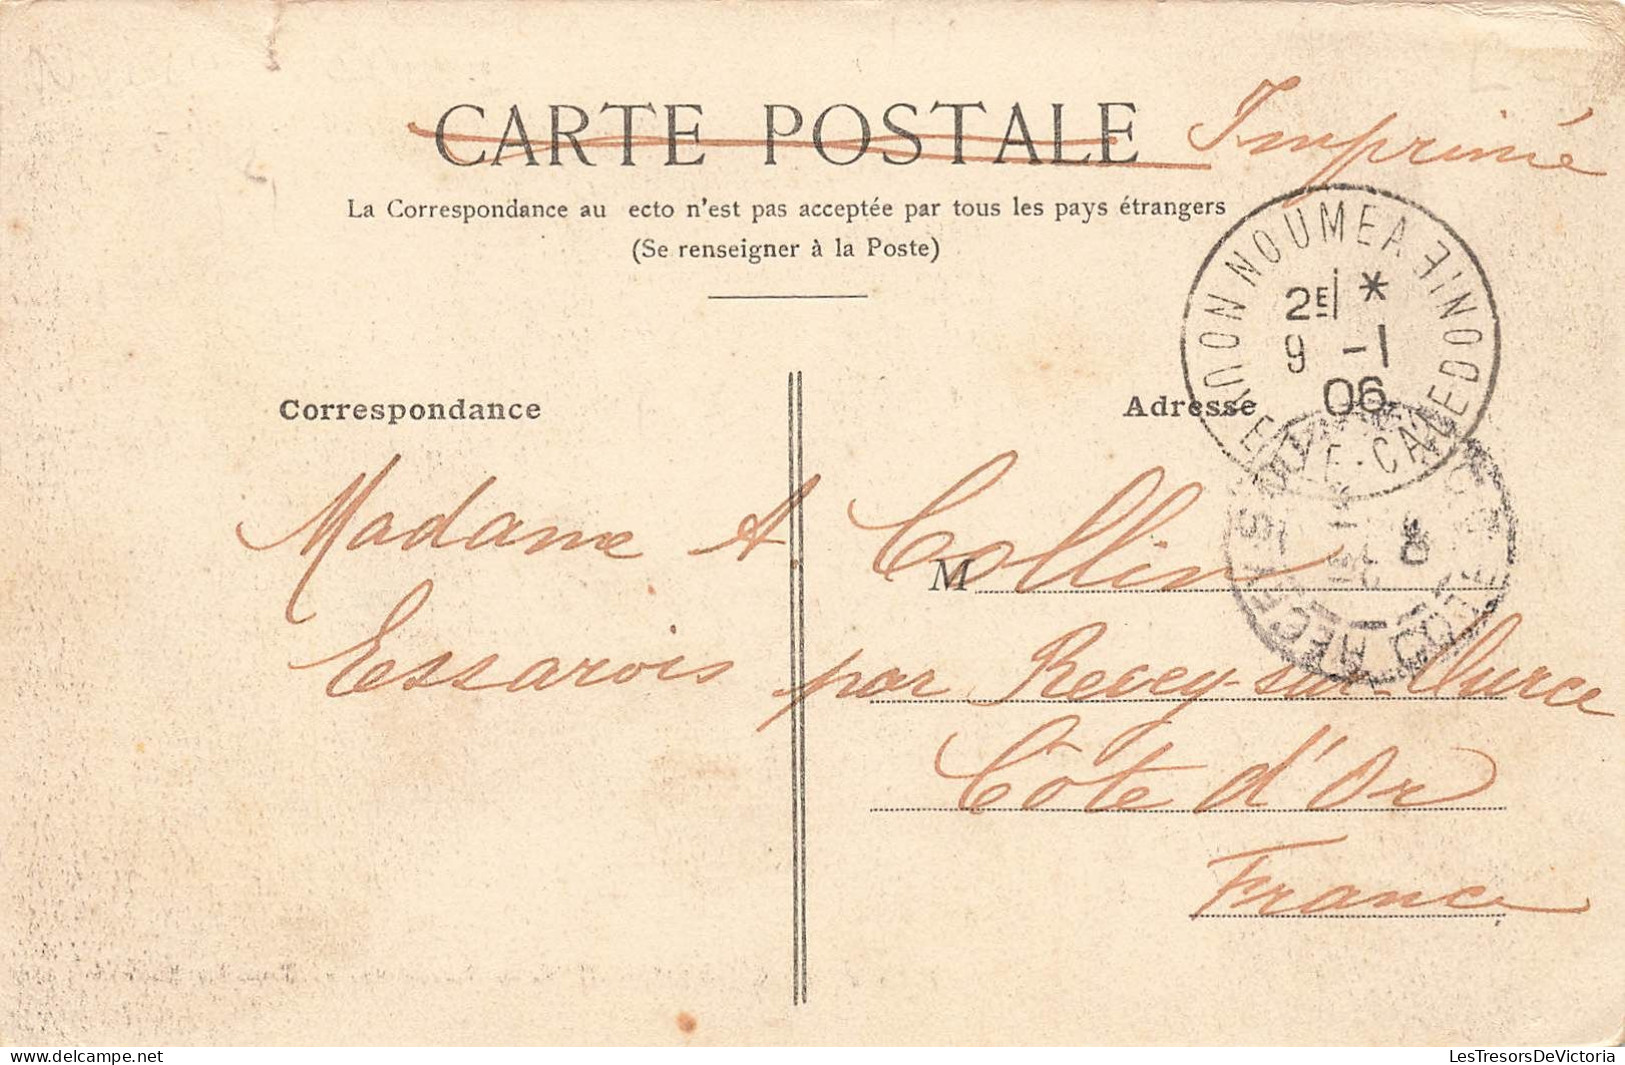 CARTE POSTALE Imprimé
La Correspondance au ecto n'est pas acceptée par tous les pays étrangers
(Se renseigner à la Poste)
NOUMEA
2E *
9 -1
06
Nlle-CALEDONIE
Correspondance
Adresse
Madame A. Collin
M
Essarois par Recey-sur-Ource
Côte d'Or
France
LesTresorsDeVictoria